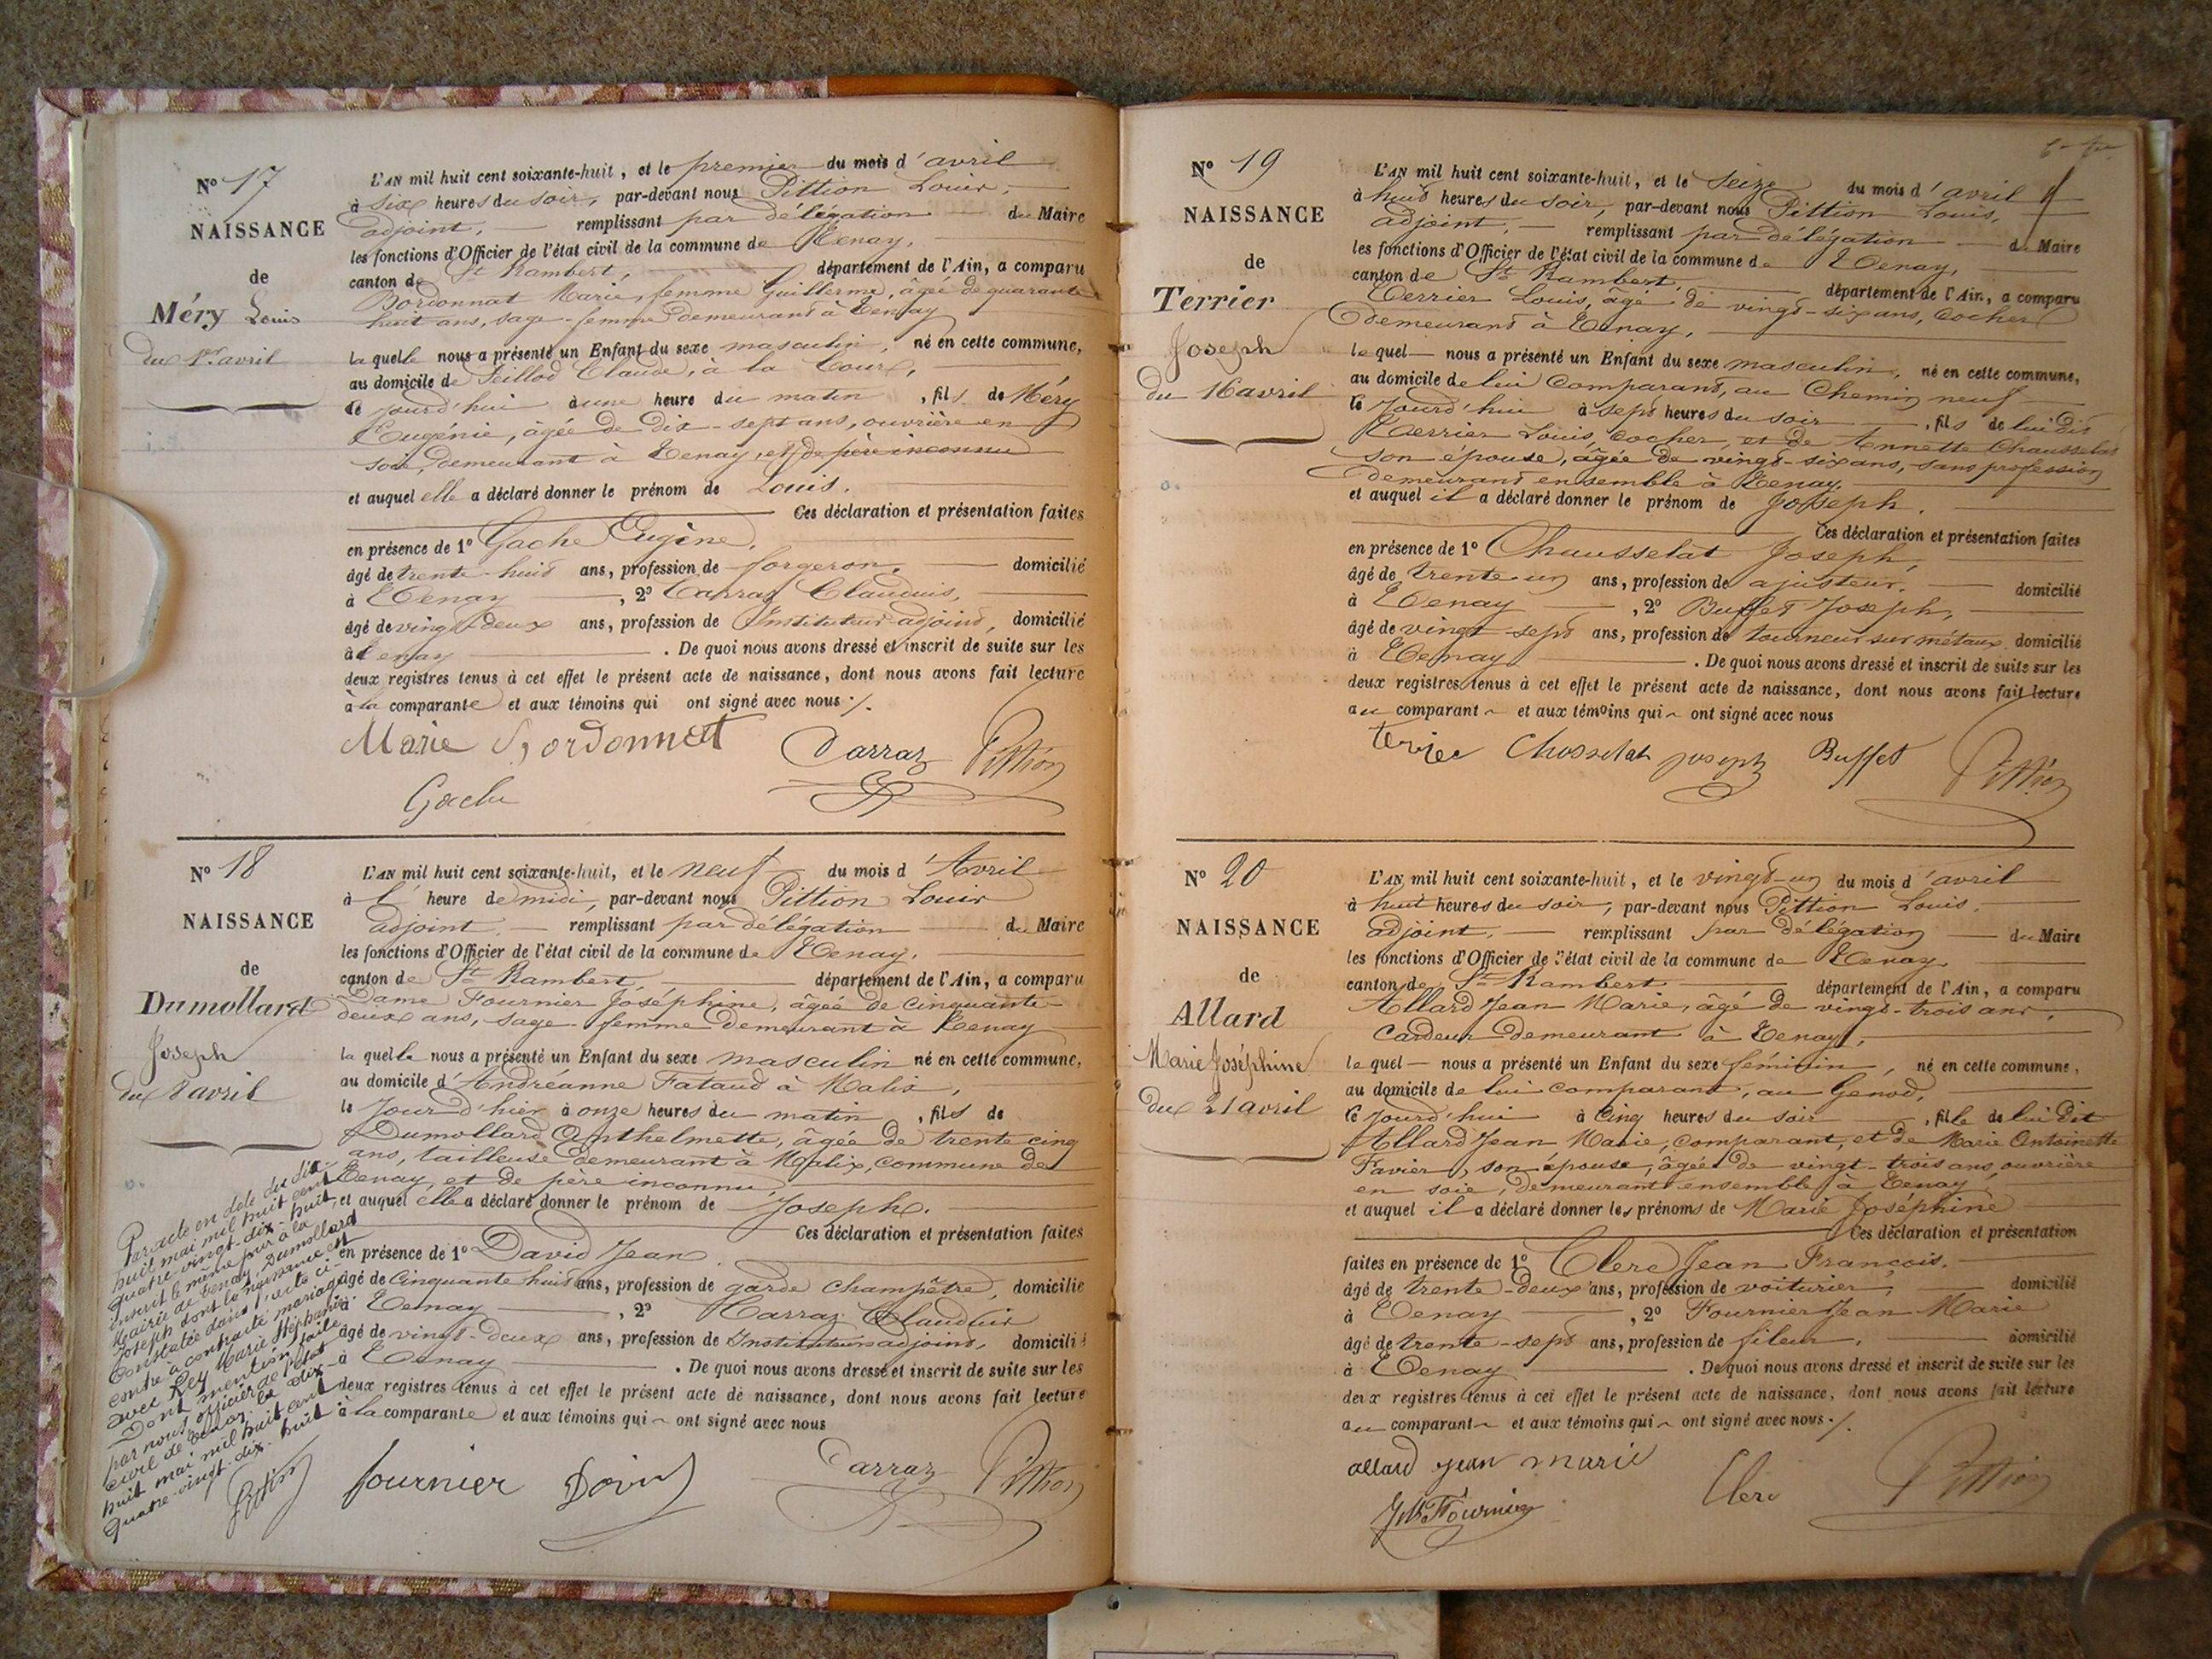 N° 17
NAISSANCE
de
Méry Louis
du 1er avril
L'AN mil huit cent soixante-huit, et le premier du mois d'avril
à six heures du soir, par-devant nous Pittion Louis,
adjoint, remplissant par délégation du Maire
les fonctions d'Officier de l'état civil de la commune de Tenay,
canton de St Rambert, département de l'Ain, a comparu
Bordonnat Marie, femme Guillerme, âgée de quarante
huit ans, sage-femme demeurant à Tenay
la quelle nous a présenté un Enfant du sexe masculin, né en cette commune,
au domicile de Feillod Claude, à la Cour,
ce jourd'hui à une heure du matin, fils de Méry
Eugénie, âgée de dix-sept ans, ouvrière en
soie, demeurant à Tenay, et de père inconnu
et auquel elle a déclaré donner le prénom de Louis.
Ces déclaration et présentation faites
en présence de 1° Gache Eugène,
âgé de trente-huit ans, profession de forgeron, domicilié
à Tenay, 2° Carraz Claudius,
âgé de vingt-deux ans, profession de Instituteur adjoint, domicilié
à Tenay. De quoi nous avons dressé et inscrit de suite sur les
deux registres tenus à cet effet le présent acte de naissance, dont nous avons fait lecture
à la comparante et aux témoins qui ont signé avec nous ./.
Marie Bordonnat Carraz Pittion
Gache
N° 18
NAISSANCE
de
Dumollard
Joseph
du 8 avril
L'AN mil huit cent soixante-huit, et le neuf du mois d'Avril
à l'heure de midi, par-devant nous Pittion Louis
adjoint, remplissant par délégation du Maire
les fonctions d'Officier de l'état civil de la commune de Tenay,
canton de St Rambert, département de l'Ain, a comparu
Dame Fournier Joséphine, âgée de cinquante-
deux ans, sage femme demeurant à Tenay
la quelle nous a présenté un Enfant du sexe masculin né en cette commune,
au domicile d'Andréanne Fataud à Malix,
le jour d'hier à onze heures du matin, fils de
Dumollard Anthelmette, âgée de trente cinq
ans, tailleuse demeurant à Malix, commune de
Tenay, et de père inconnu,
et auquel elle a déclaré donner le prénom de Joseph.
Ces déclaration et présentation faites
en présence de 1° David Jean
âgé de Cinquante huit ans, profession de garde champêtre, domicilié
à Tenay, 2° Carraz Claudius
âgé de vingt-deux ans, profession de Instituteur adjoint, domicilié
à Tenay. De quoi nous avons dressé et inscrit de suite sur les
deux registres tenus à cet effet le présent acte de naissance, dont nous avons fait lecture
à la comparante et aux témoins qui ont signé avec nous
fournier David Carraz Pittion
Par acte en date du dix-
huit mai mil huit cent
quatre vingt-dix-huit,
inscrit le même jour à la
Mairie de Tenay, Dumollard
Joseph dont la naissance est
constatée dans l'acte ci-
contre a contracté mariage
avec Rey Marie Stéphanie.
Dont mention faite
par nous officier de l'état
civil de Tenay le dix-
huit mai mil huit cent
quatre-vingt-dix-huit
N° 19
NAISSANCE
de
Terrier
Joseph
du 16 avril
L'AN mil huit cent soixante-huit, et le seize du mois d'avril
à huit heures du soir, par-devant nous Pittion Louis,
adjoint, remplissant par délégation du Maire
les fonctions d'Officier de l'état civil de la commune de Tenay,
canton de St Rambert, département de l'Ain, a comparu
Terrier Louis, âgé de vingt-six ans, cocher
demeurant à Tenay,
le quel nous a présenté un Enfant du sexe masculin, né en cette commune,
au domicile de lui comparant, au Chemin neuf
ce jourd'hui à sept heures du soir, fils de lui dit
Terrier Louis, cocher, et de Annette Chausselat
son épouse, âgée de vingt-six ans, sans profession
demeurant ensemble à Tenay
et auquel il a déclaré donner le prénom de Joseph.
Ces déclaration et présentation faites
en présence de 1° Chausselat Joseph,
âgé de trente un ans, profession de ajusteur, domicilié
à Tenay, 2° Buffet Joseph,
âgé de vingt-sept ans, profession de tourneur sur métaux domicilié
à Tenay. De quoi nous avons dressé et inscrit de suite sur les
deux registres tenus à cet effet le présent acte de naissance, dont nous avons fait lecture
au comparant et aux témoins qui ont signé avec nous
terrier Chosselat joseph Buffet Pittion
N° 20
NAISSANCE
de
Allard
Marie Joséphine
du 21 avril
L'AN mil huit cent soixante-huit, et le vingt-un du mois d'avril
à huit heures du soir, par-devant nous Pittion Louis,
adjoint, remplissant par délégation du Maire
les fonctions d'Officier de l'état civil de la commune de Tenay,
canton de St Rambert département de l'Ain, a comparu
Allard Jean Marie, âgé de vingt-trois ans,
cardeur demeurant à Tenay,
le quel nous a présenté un Enfant du sexe féminin, né en cette commune,
au domicile de lui comparant, au Genod,
ce jourd'hui à cinq heures du soir, fille de lui dit
Allard Jean Marie, comparant, et de Marie Antoinette
Favier, son épouse, âgée de vingt-trois ans, ouvrière
en soie, demeurant ensemble à Tenay
et auquel il a déclaré donner les prénoms de Marie Joséphine
Ces déclaration et présentation
faites en présence de 1° Clerc Jean François.
âgé de trente-deux ans, profession de voiturier, domicilié
à Tenay, 2° Fournier Jean Marie
âgé de trente-sept ans, profession de fileur, domicilié
à Tenay. De quoi nous avons dressé et inscrit de suite sur les
deux registres tenus à cet effet le présent acte de naissance, dont nous avons fait lecture
au comparant et aux témoins qui ont signé avec nous ./.
allard jean marie Clerc Pittion
JM Fournier